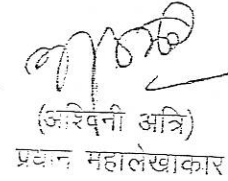 (अश्विनी अत्रि)
प्रधान महालेखाकार